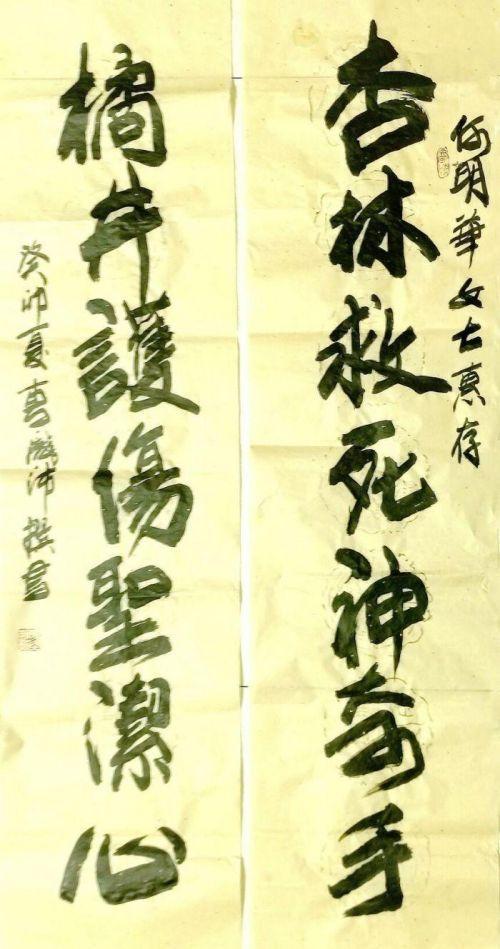 何明華女士惠存
杏林救死神奇手
橘井護傷聖潔心
癸卯夏 撰書